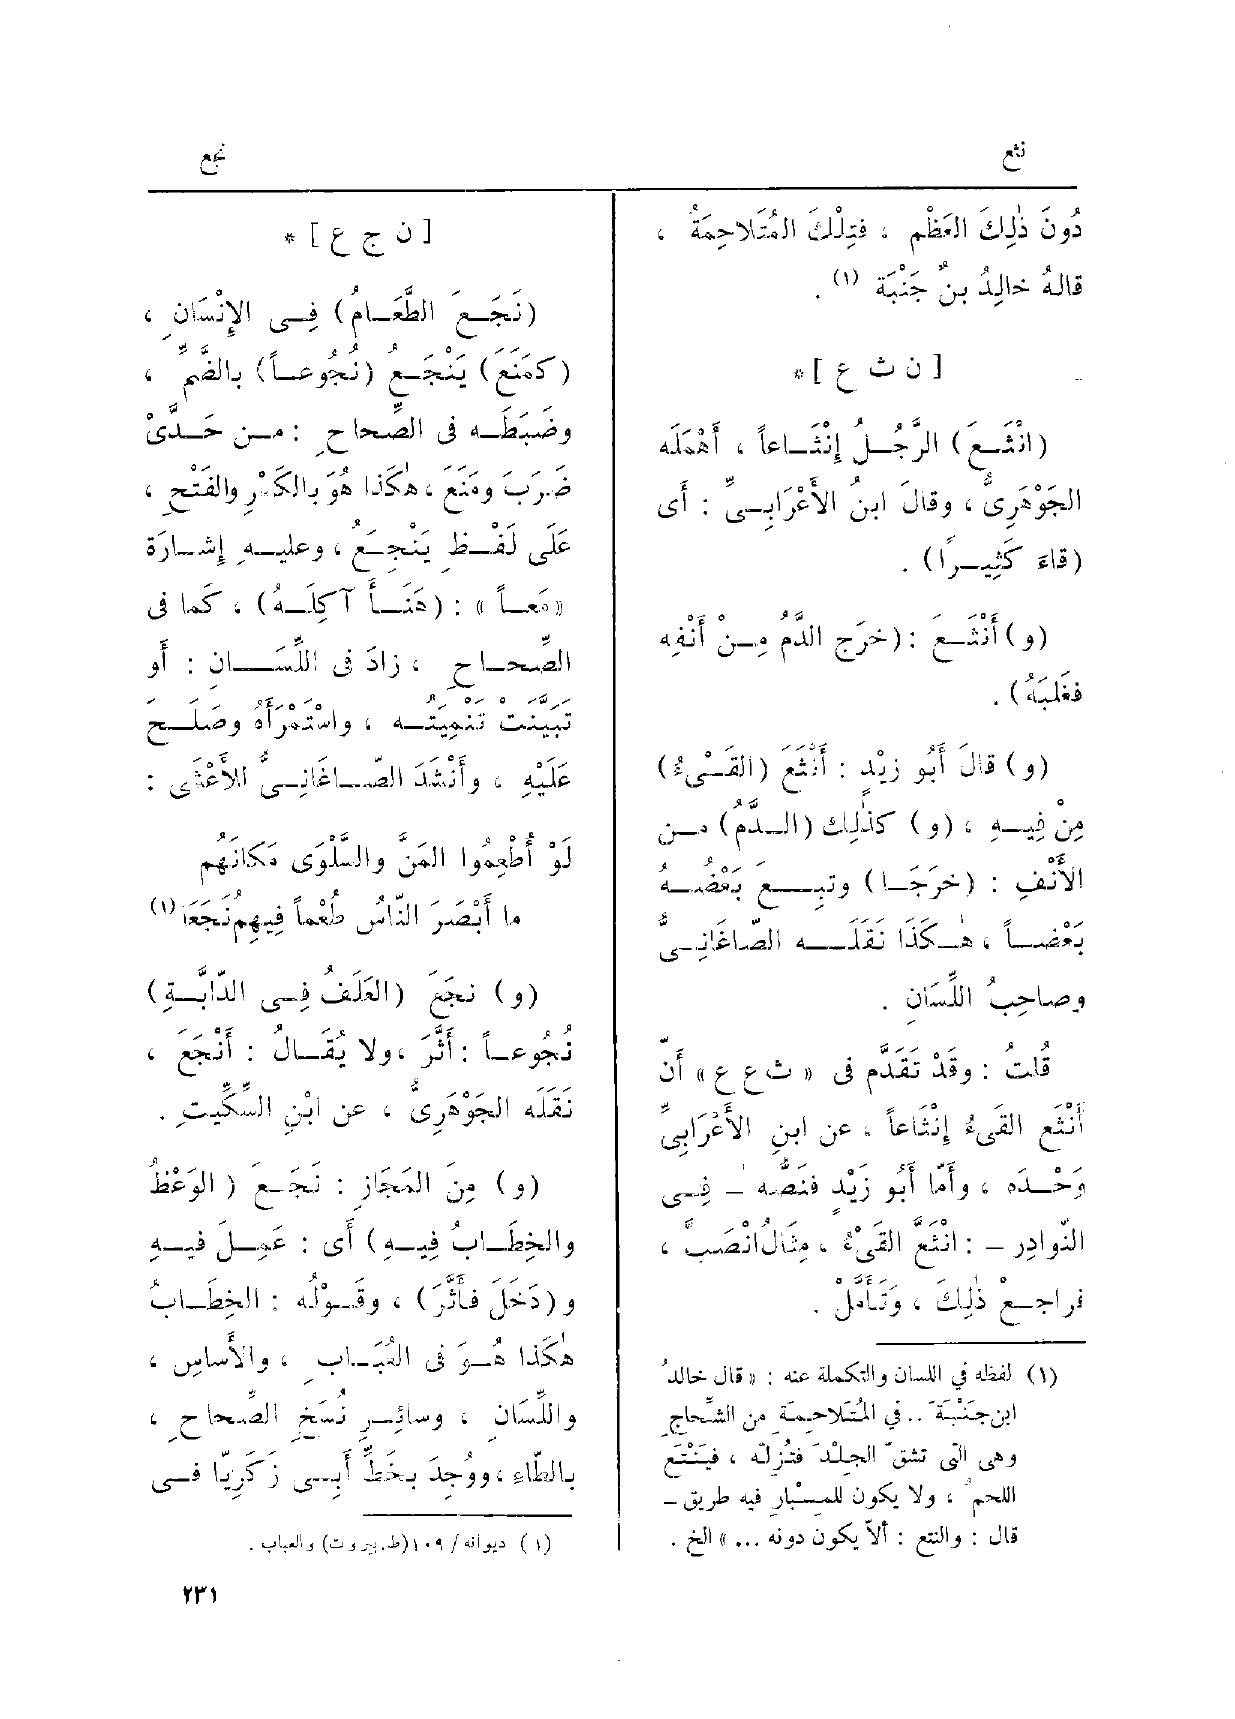 نثع
نجع
دُونَ ذٰلِكَ العَظْمِ ، فتِلْكَ المُتَلَاحِمَةُ ،
قالهُ خالِدُ بنُ جَنْبَة (١) .
[ ن ث ع ] *
(انْثَــع) الرَّجُــلُ إِنْثَــاعاً ، أَهْمَلَه
الجَوْهَرِيُّ ، وقالَ ابنُ الأَعْرَابِــىِّ : أَى
(قاءَ كَثِيــرًا) .
(و) أَنْثَــعَ : (خَرَج الدَّمُ مِــنْ أَنْفِه
فغَلَبَهُ) .
(و) قالَ أَبُو زَيْدٍ : أَنْثَعَ (القَــىْءُ)
مِنْ فِيــهِ ، (و) كذٰلِك (الــدَّمُ) مــن
الأَنْفِ : (خَرَجَــا) وتبِــــعَ بَعْضُــهُ
بَعْضــاً ، هٰــكَذَا نَقَلَــــه الصّاغَانِــىُّ
وصاحِبُ اللِّسَانِ .
قلتُ : وقَدْ تَقَدَّم فى « ث ع ع » أَنّ
أَنْثَع القَىءُ إِنْثَاعاً ، عن ابنِ الأَعْرَابِىِّ
وَحْــدَه ، وأَمّا أَبُو زَيْدٍ فنَصُّه - فِــى
النَّوادِرِ - : انْثَعَّ القَىْءُ ، مِثَالُ انْصَبَّ ،
فراجــعْ ذٰلِكَ ، وَتَأَمَّلْ .
(١) لفظه في اللسان والتكملة عنه : « قال خالدُ
ابن جَنْبَةَ .. في المُتَلاحِمةِ من الشِّجاجِ
وهى التى تشقّ الجِلْدَ فتُزلّه ، فيَنْتَع
اللحم ، ولا يكون للمِسْبارِ فيه طريق -
قال : والنتع : ألاّ يكون دونه ... » الخ .
[ ن ج ع ] *
(نَجَــعَ الطَّعَــامُ) فِــى الإِنْسَانِ ،
(كمَنَعَ) يَنْجَــعُ (نُجُوعــاً) بالضَّمِّ ،
وضَبَطَــه فى الصِّحاحِ : مــن حَــدَّىْ
ضَرَبَ ومَنَعَ ، هٰكَذا هُوَ بالكَسْرِ والفَتْحِ ،
عَلَى لَفْــظِ يَنْجــعُ ، وعليــهِ إِشــارَة
« مَعــاً » : (هَنَــأَ آكِلَــهُ) ، كَما فى
الصِّحــاحِ ، زادَ فى اللِّسَــــانِ : أَو
تَبَيَّنَتْ تَنْمِيَتُــه ، واسْتَمْرَأَهُ وصَلَــحَ
عَلَيْهِ ، وأَنْشَدَ الصّــاغَانِــىُّ لِلأَعْشَى :
لَوْ أُطْعِمُوا المَنَّ والسَّلْوَى مَكانَهُم
ما أَبْصَرَ النّاسُ طُعْماً فِيهِمُ نَجَعَا (١)
(و) نَجَعَ (العَلَفُ فِــى الدّابَّــةِ)
نُجُوعــاً : أَثَّرَ ، ولا يُقَــالُ : أَنْجَعَ ،
نَقَلَه الجَوْهَرِىُّ ، عن ابْنِ السِّكِّيتِ .
(و) مِنَ المَجَازِ : نَجَــعَ ( الوَعْظُ
والخِطَــابُ فِيــهِ) أَى : عَمِــلَ فيــهِ
و(دَخَلَ فأَثَّرَ) ، وقَــوْلُه : الخِطَــابُ
هٰكَذا هُــوَ فى العُبَــابِ ، والأَساسِ ،
واللِّسَانِ ، وسائِــرِ نُسَخِ الصِّحاحِ ،
بالطّاءِ ، ووُجِدَ بخَطِّ أَبِــى زَكَرِيّا فــى
(١) ديوانه / ١٠٩ (ط. بيروت) والعباب .
٢٣١